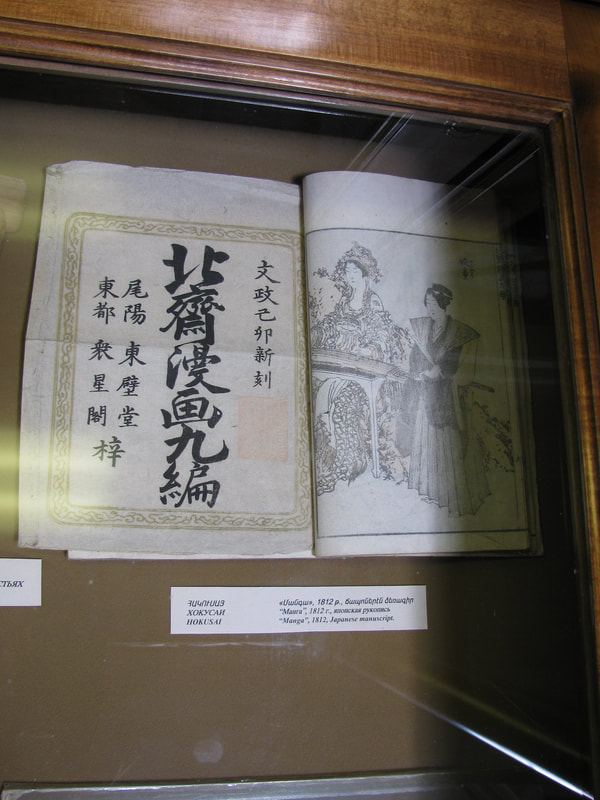 文政己卯新刻
北齋漫画九編
尾陽 東壁堂
東都 衆星閣 梓
СТЬЯХ
ՀԱԿՈՒՍԱՅ
ХОКУСАИ
HOKUSAI
«Մանգա», 1812 թ., ճապոներեն ձեռագիր
“Манга”, 1812 г., японская рукопись
“Manga”, 1812, Japanese manuscript.